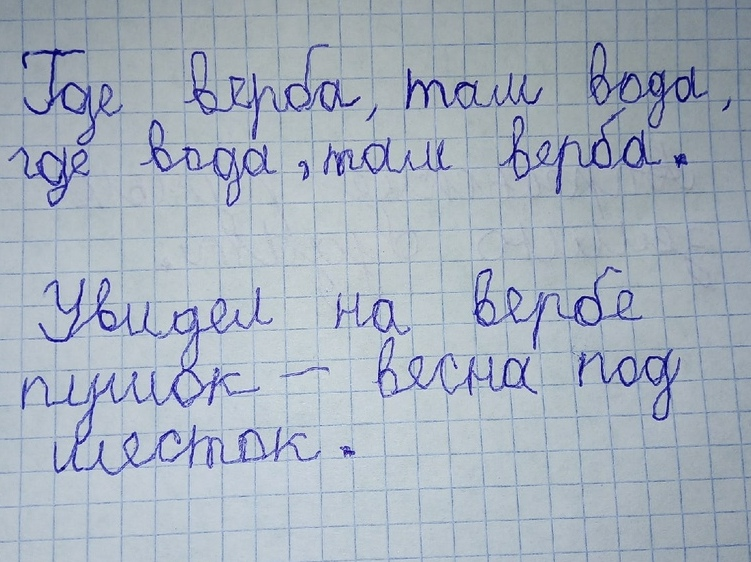 Где верба, там вода,
где вода, там верба.
Увидел на вербе
пушок — весна под
шесток.